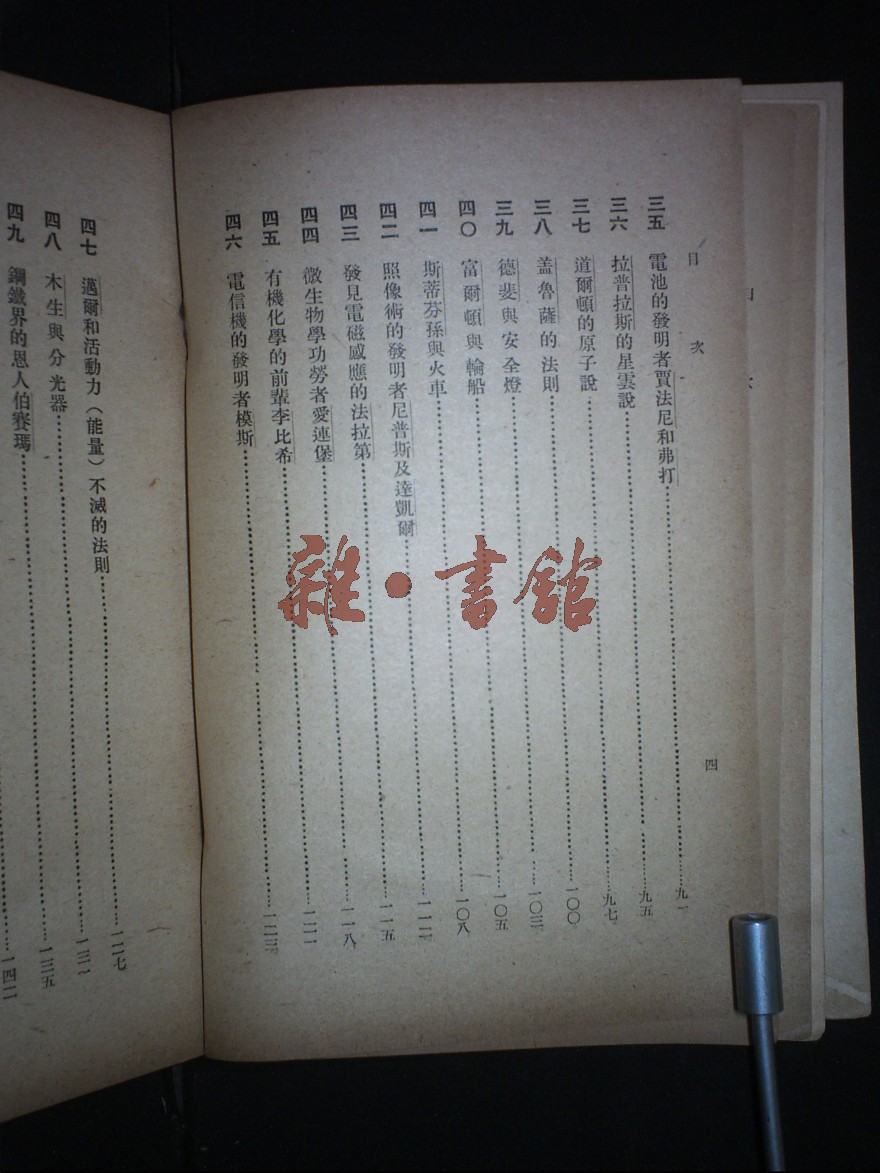 目次
四
三五 電池的發明者賈法尼和弗打……九一
三六 拉普拉斯的星雲說……九五
三七 道爾頓的原子說……九七
三八 盖魯薩的法則……一〇〇
三九 德斐與安全燈……一〇三
四〇 富爾頓與輪船……一〇五
四一 斯蒂芬孫與火車……一〇八
四二 照像術的發明者尼普斯及達凱爾……一一二
四三 發見電磁感應的法拉第……一一五
四四 微生物學功勞者愛連堡……一一八
四五 有機化學的前輩李比希……一二一
四六 電信機的發明者模斯……一二三
四七 邁爾和活動力（能量）不滅的法則……一二七
四八 木生與分光器……一三一
四九 鋼鐵界的恩人伯賽瑪……一三五
一四二
雜·書館